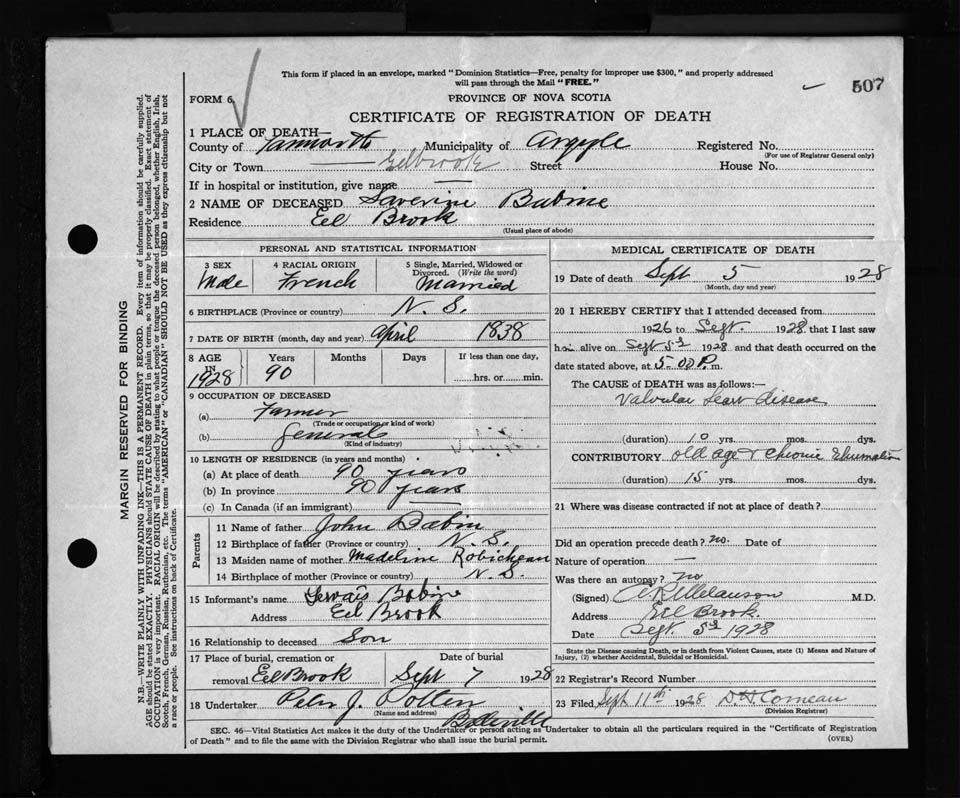 This form if placed in an envelope, marked "Dominion Statistics—Free, penalty for improper use $300," and properly addressed
will pass through the Mail "FREE."
507
FORM 6
PROVINCE OF NOVA SCOTIA
CERTIFICATE OF REGISTRATION OF DEATH
1 PLACE OF DEATH—
County of Yarmouth Municipality of Argyle Registered No.
(For use of Registrar General only)
City or Town Eelbrook Street House No.
If in hospital or institution, give name
2 NAME OF DECEASED Saverine Babine
Residence Eel Brook
(Usual place of abode)
PERSONAL AND STATISTICAL INFORMATION
3 SEX
Male
4 RACIAL ORIGIN
French
5 Single, Married, Widowed or
Divorced. (Write the word)
Married
6 BIRTHPLACE (Province or country) N. S.
7 DATE OF BIRTH (month, day and year) April 1838
8 AGE IN 1928
Years 90
Months
Days
If less than one day,
hrs. or min.
9 OCCUPATION OF DECEASED
(a) Farmer
(Trade or occupation or kind of work)
(b) General
(Kind of industry)
10 LENGTH OF RESIDENCE (in years and months)
(a) At place of death 90 years
(b) In province 90 years
(c) In Canada (if an immigrant)
Parents
11 Name of father John Babin
12 Birthplace of father (Province or country) N. S.
13 Maiden name of mother Madeline Robicheau
14 Birthplace of mother (Province or country) N. S.
15 Informant's name Gervais Babine
Address Eel Brook
16 Relationship to deceased Son
17 Place of burial, cremation or Date of burial
removal Eel Brook Sept 7 1928
18 Undertaker Peter J. Potten
(Name and address) Belleville
MEDICAL CERTIFICATE OF DEATH
19 Date of death Sept 5 1928
(Month, day and year)
20 I HEREBY CERTIFY that I attended deceased from
1926 to Sept. 1928, that I last saw
him alive on Sept 5th 1928 and that death occurred on the
date stated above, at 5.00 P. m.
The CAUSE of DEATH was as follows:—
Valvular heart disease
(duration) 10 yrs. mos. dys.
CONTRIBUTORY old age & chronic Rhumatism
(duration) 15 yrs. mos. dys.
21 Where was disease contracted if not at place of death?
Did an operation precede death? no. Date of
Nature of operation —
Was there an autopsy? no
(Signed) M.D.
Address Eel Brook
Date Sept. 5th 1928
State the Disease causing Death, or in death from Violent Causes, state (1) Means and Nature of
Injury, (2) whether Accidental, Suicidal or Homicidal.
22 Registrar's Record Number
23 Filed Sept 11th 1928 D. H. Comeau
(Division Registrar)
SEC. 46—Vital Statistics Act makes it the duty of the Undertaker or person acting as Undertaker to obtain all the particulars required in the "Certificate of Registration
of Death" and to file the same with the Division Registrar who shall issue the burial permit.
(OVER)
MARGIN RESERVED FOR BINDING
N.B.—WRITE PLAINLY WITH UNFADING INK—THIS IS A PERMANENT RECORD. Every item of information should be carefully supplied.
AGE should be stated EXACTLY. PHYSICIANS should STATE CAUSE OF DEATH in plain terms, so that it may be properly classified. Exact statement of
OCCUPATION is very important. RACIAL ORIGIN will be described by stating to what people or tongue the deceased person belonged, whether English, Irish,
Scotch, French, German, Russian, Ruthenian, etc. The terms "AMERICAN" or "CANADIAN" SHOULD NOT BE USED as they express citizenship but not
a race or people. See instructions on back of Certificate.